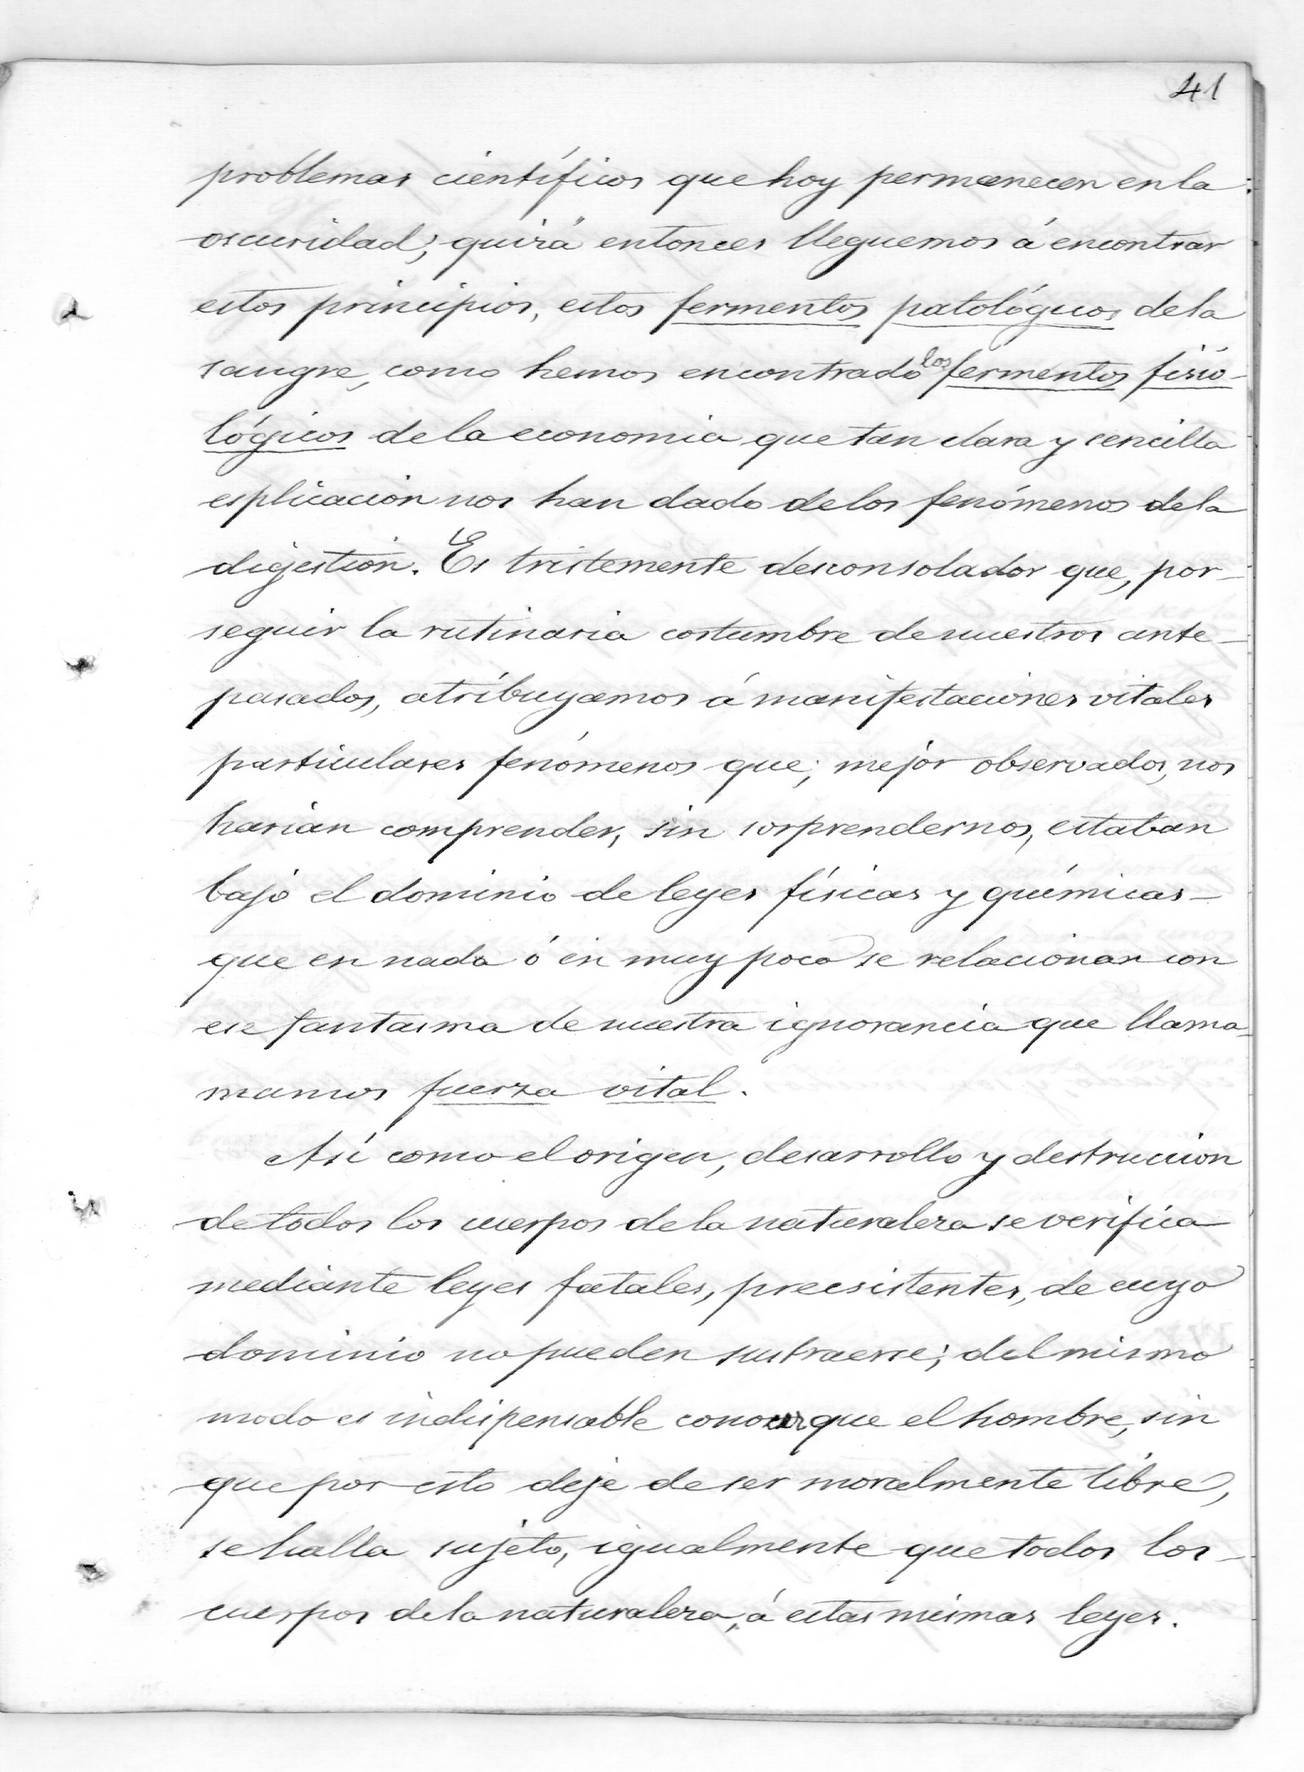 41
problemas científicos que hoy permanecen en la
oscuridad; quizá entonces lleguemos á encontrar
estos principios, estos fermentos patológicos de la
sangre, como hemos encontrado los fermentos fisio-
lógicos de la economia que tan clara y sencilla
esplicación nos han dado de los fenómenos de la
digestión. Es tristemente desconsolador que, por
seguir la rutinaria costumbre de nuestros ante-
pasados, atribuyamos á manifestaciones vitales
particulares fenómenos que, mejor observados, nos
harian comprender, sin sorprendernos, estaban
bajo el dominio de leyes físicas y químicas
que en nada ó en muy poco se relacionan con
ese fantasma de nuestra ignorancia que llama-
mamos fuerza vital.
Así como el origen, desarrollo y destruccion
de todos los cuerpos de la naturaleza se verifica
mediante leyes fatales, preesistentes, de cuyo
dominio no pueden sustraerse; del mismo
modo es indispensable conocer que el hombre, sin
que por esto deje de ser moralmente libre,
se halla sujeto, igualmente que todos los
cuerpos de la naturaleza, á estas mismas leyes.